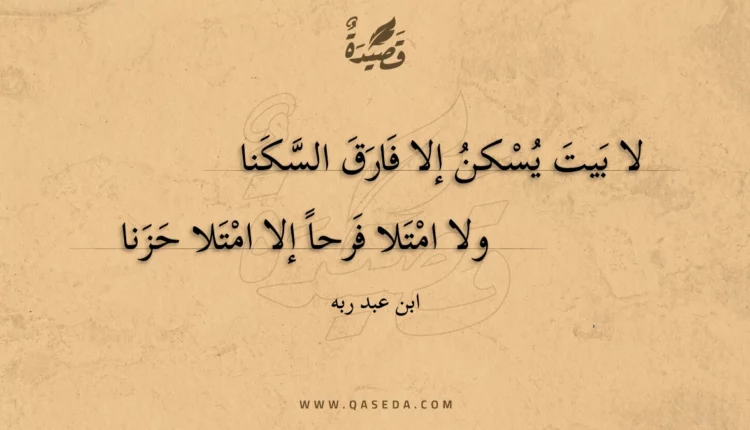 قَصِيْدَةٌ
لا بَيتَ يُسْكنُ إلا فَارَقَ السَّكَنا
ولا امْتَلا فَرحاً إلا امْتَلا حَزَنا
ابن عبد ربه
WWW.QASEDA.COM